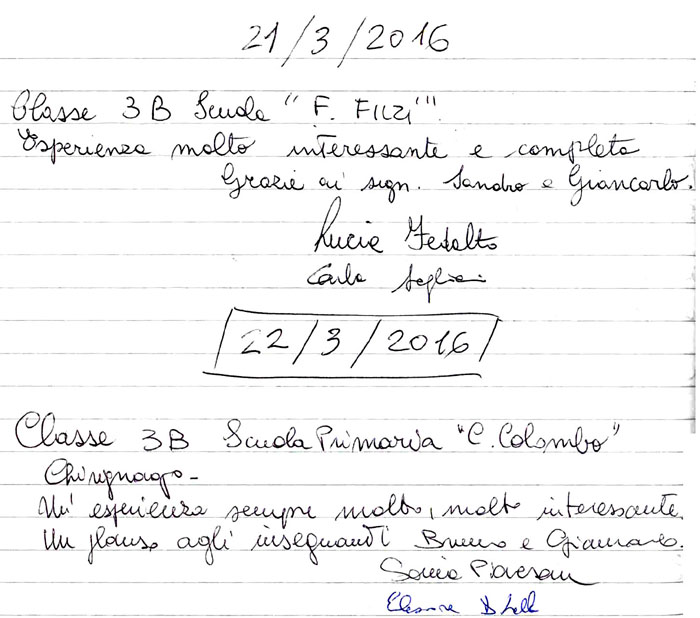 21/3/2016
Classe 3B Scuola "F. FILZI"
Esperienza molto interessante e completa
Grazie ai sign. Sandro e Giancarlo.
Lucia Fedalto
Carla
22/3/2016
Classe 3B Scuola Primaria "C. Colombo"
Chirignago-
Un' esperienza sempre molto, molto interessante.
Un plauso agli insegnanti Bruno e Gianmarco.
Sonia Piovesan